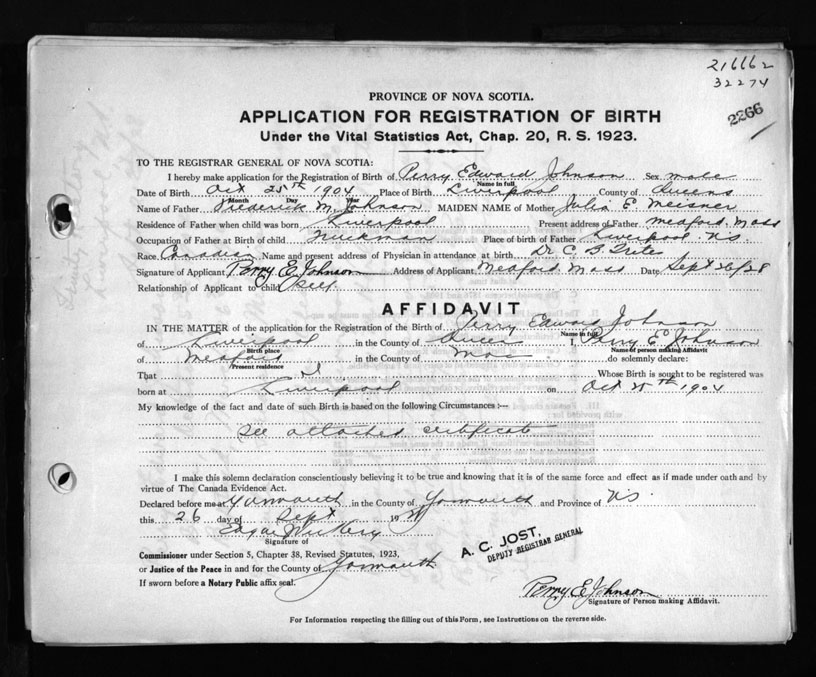 216662
32274
2266
PROVINCE OF NOVA SCOTIA.
APPLICATION FOR REGISTRATION OF BIRTH
Under the Vital Statistics Act, Chap. 20, R. S. 1923.
TO THE REGISTRAR GENERAL OF NOVA SCOTIA:
I hereby make application for the Registration of Birth of Perry Edward Johnson Sex male
Name in full
Date of Birth Oct 25th 1904 Place of Birth Liverpool County of Queens
Month Day Year
Name of Father Frederick M. Johnson MAIDEN NAME of Mother Julia E Meisner
Residence of Father when child was born Liverpool Present address of Father Medford Mass
Occupation of Father at Birth of child Truckman Place of birth of Father Liverpool N.S.
Race Canadian Name and present address of Physician in attendance at birth Dr C B
Signature of Applicant Perry E Johnson Address of Applicant Medford Mass Date Sept 26/28
Relationship of Applicant to child self
AFFIDAVIT
IN THE MATTER of the application for the Registration of the Birth of Perry Edward Johnson
Name in full
of Liverpool in the County of Queens I, Perry E Johnson
Birth place Name of person making Affidavit
of Medford in the County of Mass do solemnly declare:
Present residence
That I Whose Birth is sought to be registered was
born at Liverpool on Oct 25th 1904
My knowledge of the fact and date of such Birth is based on the following Circumstances :—
See attached certificate
I make this solemn declaration conscientiously believing it to be true and knowing that it is of the same force and effect as if made under oath and by
virtue of The Canada Evidence Act.
Declared before me at Yarmouth in the County of Yarmouth and Province of N.S.
this 26 day of Sept 1928
Signature of
Commissioner under Section 5, Chapter 38, Revised Statutes, 1923,
or Justice of the Peace in and for the County of Yarmouth
If sworn before a Notary Public affix seal.
A. C. JOST,
DEPUTY REGISTRAR GENERAL
Perry E Johnson
Signature of Person making Affidavit.
For Information respecting the filling out of this Form, see Instructions on the reverse side.